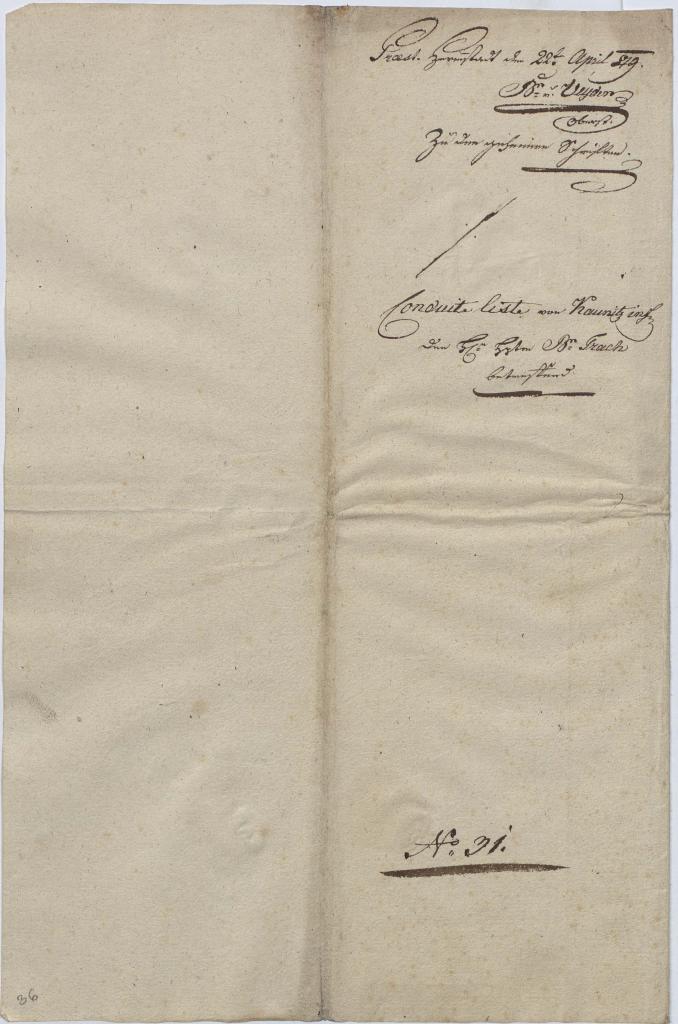 Præs. Hermstadt den 22t April 819.
Br. v.
Oberst.
Zu den geheimen Schriften.
Conduite liste von Kaunitz Inf.
den H. Br. Trach
betreffend.
No. 31.
36